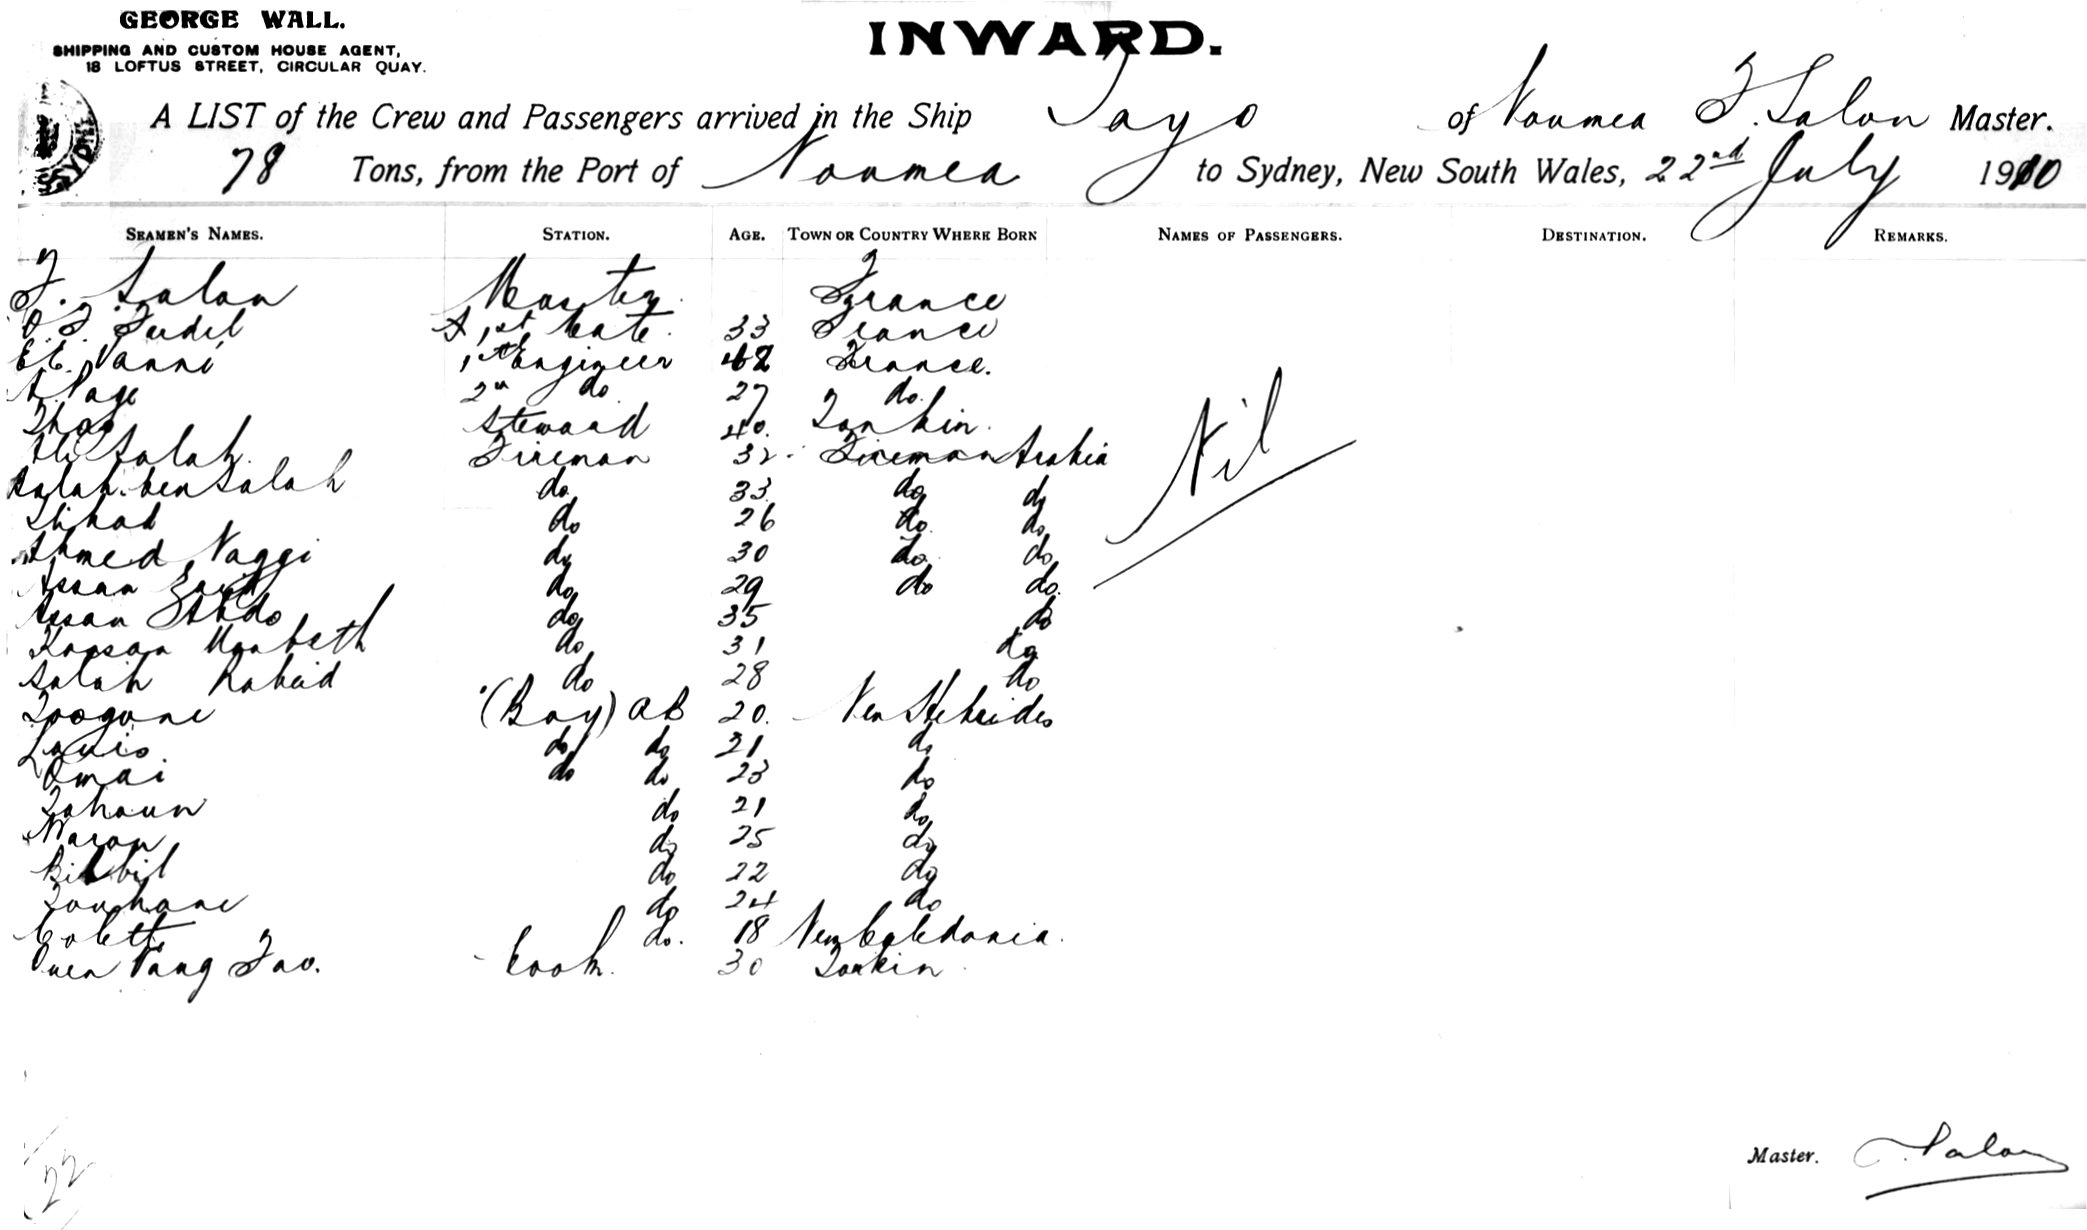 GEORGE WALL.
SHIPPING AND CUSTOM HOUSE AGENT,
18 LOFTUS STREET, CIRCULAR QUAY.
INWARD.
A LIST of the Crew and Passengers arrived in the Ship Tayo of Noumea F. Salon Master.
78 Tons, from the Port of Noumea to Sydney, New South Wales, 22nd July 1910
SEAMEN'S NAMES. STATION. AGE. TOWN OR COUNTRY WHERE BORN NAMES OF PASSENGERS. DESTINATION. REMARKS.
F. Salon Master France
1st Mate 33 France
Vanni 1st Engineer 42 France.
A Page 2n do 27 do.
Steward 40. Tonkin.
Ali Salah. Fireman 32 Fireman Arabia
Salah ben Salah do 33 do do
do 26 do do
Ahmed Naggi do 30 do do
Assan Zaid do 29 do do.
Assan Abdo do 35 do
do 31 do
Salah do 28 do
(Boy) AB 20. New Hebrides
Louis do do 21 do
Omai do do 23 do
Tahoun do 21 do
do 25 do
Bilbil do 22 do
do 24 do
Colette do. 18 New Caledonia.
Vang Cook. 30 Tonkin
Nil
22
Master. F. Salon